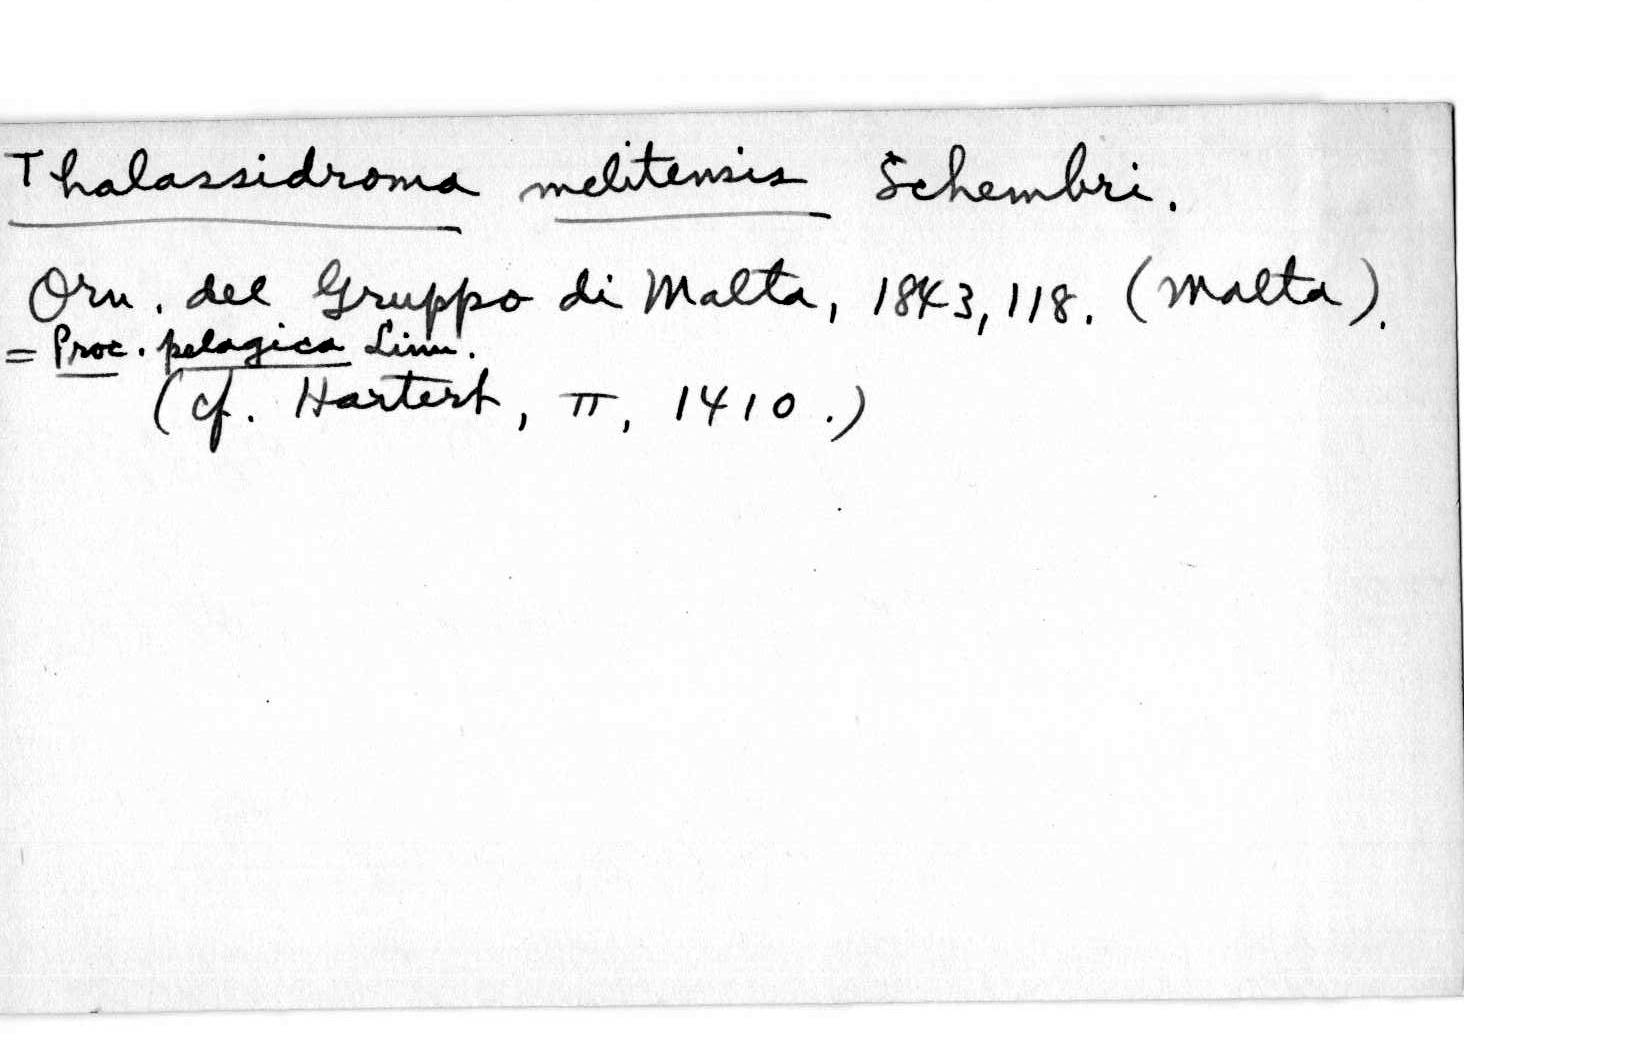 Thalassidroma melitensis Schembri.
Orn. del Gruppo di Malta, 1843, 118. (Malta).
= Proc. pelagica Linn.
(cf. Hartert, II, 1410.)